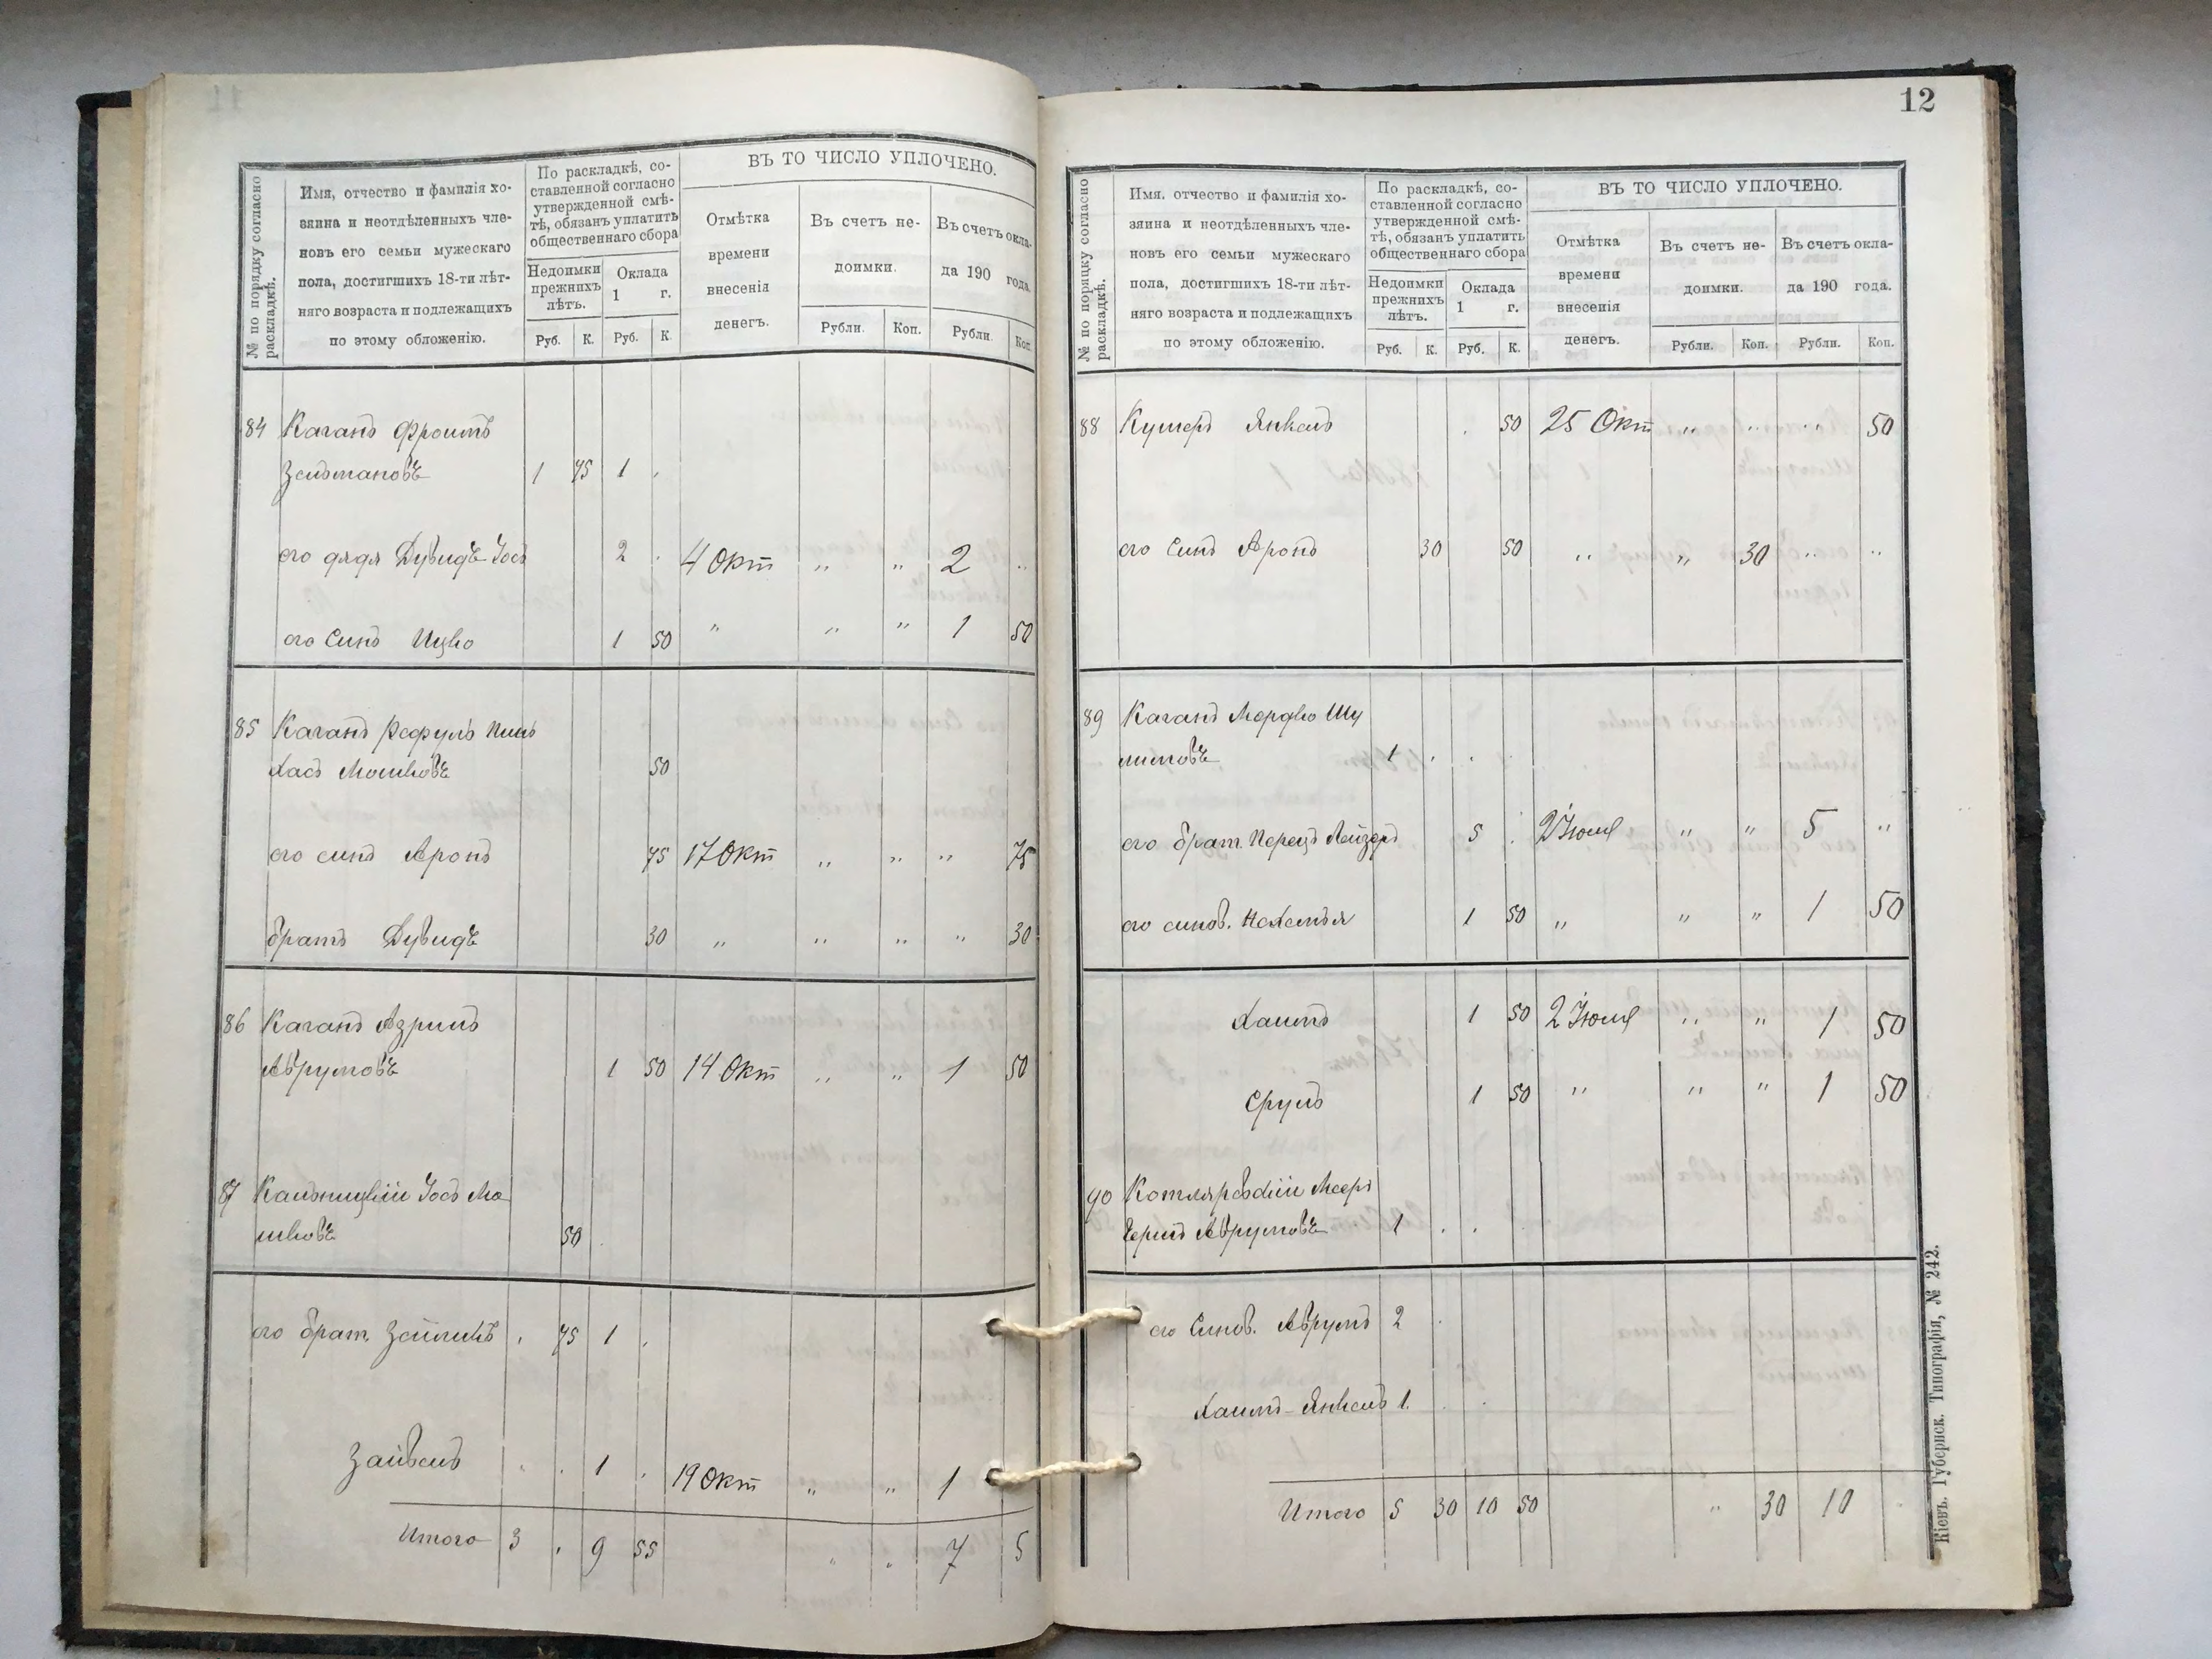 № по порядку согласно раскладкѣ.
Имя, отчество и фамилія хо-
зяина и неотдѣленныхъ чле-
новъ его семьи мужескаго
пола, достигшихъ 18-ти лѣт-
няго возраста и подлежащихъ
по этому обложенію.
По раскладкѣ, со-
ставленной согласно
утвержденной смѣ-
тѣ, обязанъ уплатить
общественнаго сбора
Недоимки
прежнихъ
лѣтъ.
Оклада
1 г.
Руб. К. Руб. К.
ВЪ ТО ЧИСЛО УПЛОЧЕНО.
Отмѣтка
времени
внесенія
денегъ.
Въ счетъ не-
доимки.
Въ счетъ окла-
да 190 года.
Рубли. Коп. Рубли. Коп.
84 Каганъ Фроимъ
Зельмановъ 1 75 1 .
его дядя Дувидъ Іось 2 . 4 Окт „ „ 2 „
его Сынъ Ицко 1 50 „ „ „ 1 50
85 Каганъ Рефулъ Пин
хасъ Мошковъ 50
его сынъ Аронъ 75 17 Окт „ „ „ 75
братъ Дувидъ 30 „ „ „ „ 30
86 Каганъ Азриль
Аврумовъ 1 50 14 Окт „ „ 1 50
87 Кальницкій Іось Мо
шковъ 50
его брат. Зейликъ . 75 1 .
Зайвель . . 1 . 19 Окт „ „ 1
Итого 3 . 9 55 „ „ 7 5
12
№ по порядку согласно раскладкѣ.
Имя. отчество и фамилія хо-
зяина и неотдѣленныхъ чле-
новъ его семьи мужескаго
пола, достигшихъ 18-ти лѣт-
няго возраста и подлежащихъ
по этому обложенію.
По раскладкѣ, со-
ставленной согласно
утвержденной смѣ-
тѣ, обязанъ уплатить
общественнаго сбора
Недоимки
прежнихъ
лѣтъ.
Оклада
1 г.
Руб. К. Руб. К.
ВЪ ТО ЧИСЛО УПЛОЧЕНО.
Отмѣтка
времени
внесенія
денегъ.
Въ счетъ не-
доимки.
Въ счетъ окла-
да 190 года.
Рубли. Коп. Рубли. Коп.
88 Кушеръ Янкель . 50 25 Окт „ „ „ 50
его Сынъ Аронъ 30 50 „ „ 30 „ „
89 Каганъ Мордко Шу
лимовъ 1 . .
его брат. Перецъ Лейзоръ 5 . 2 Іюля „ „ 5 „
его сынов. Нехемья 1 50 „ „ „ 1 50
Хаимъ 1 50 2 Іюля „ „ 1 50
Срулъ 1 50 „ „ „ 1 50
90 Котляревскій Мееръ
Берко Аврумовъ 1 . .
его Сынов. Аврумъ 2 .
Хаимъ-Янкель 1. . .
Итого 5 30 10 50 „ 30 10 .
Кіевъ. Губернск. Типографія, № 242.